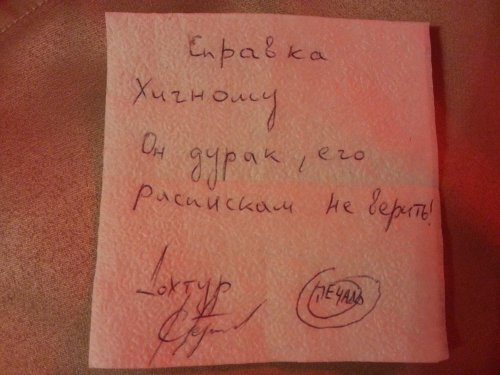 Справка
Хичному
Он дурак, его
распискам не верить!
Дохтур
ПЕЧАЛЬ